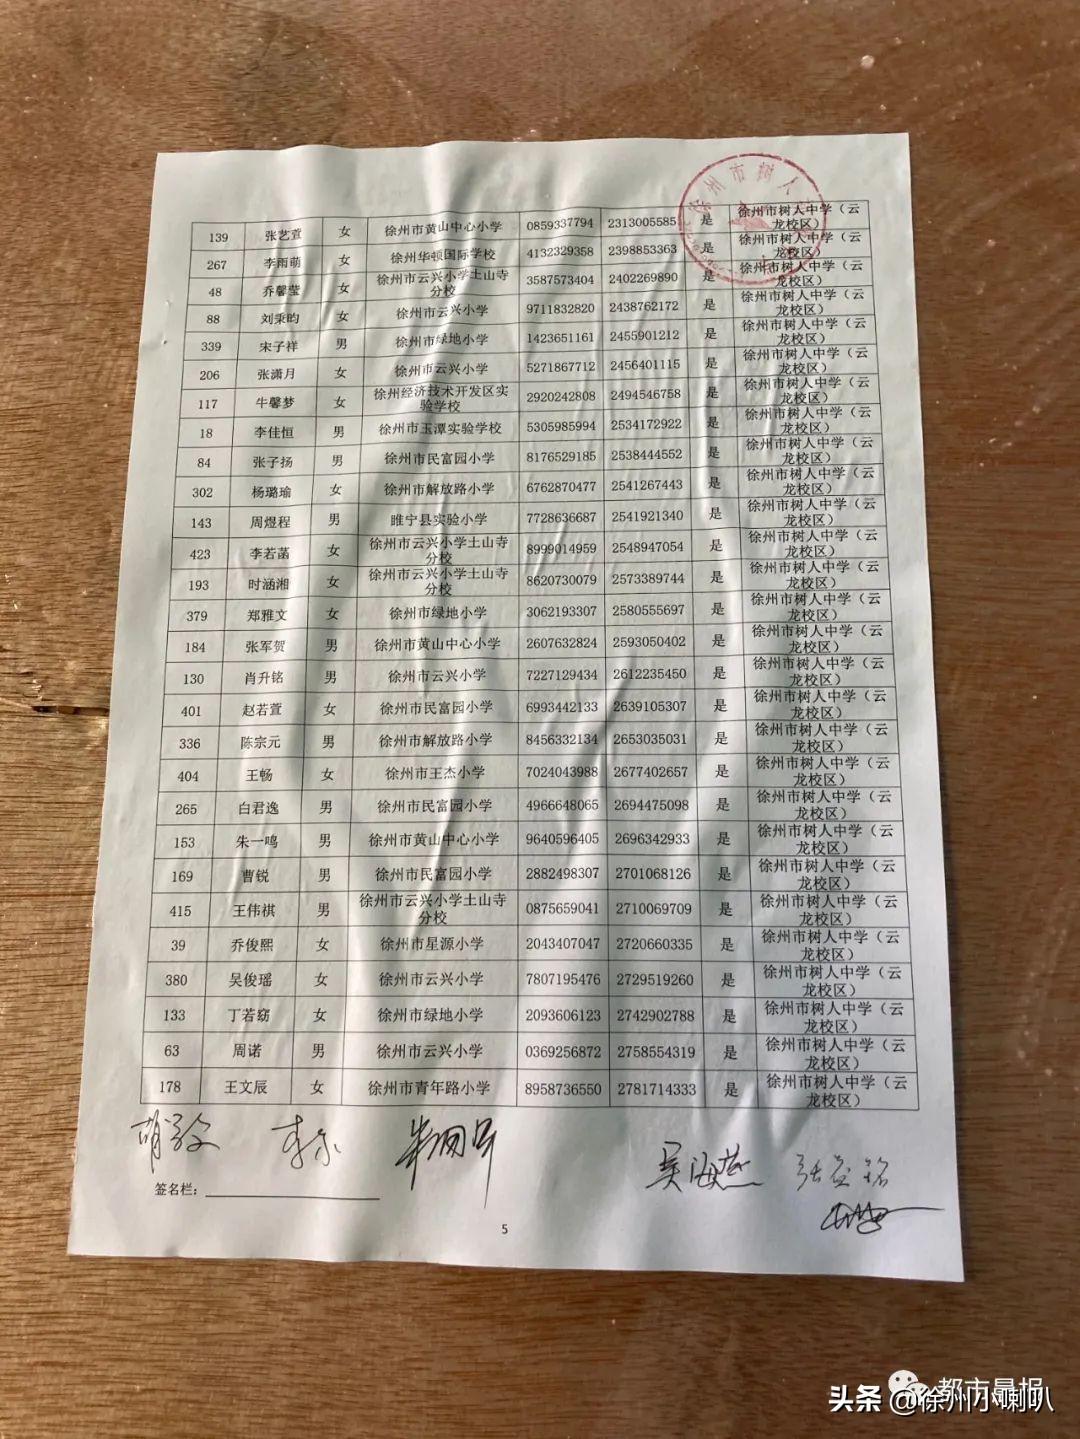 徐州市树人
139 张艺萱 女 徐州市黄山中心小学 0859337794 2313005585 是 徐州市树人中学（云
龙校区）
267 李雨萌 女 徐州华顿国际学校 4132329358 2398853363 是 徐州市树人中学（云
龙校区）
48 乔馨莹 女 徐州市云兴小学土山寺 3587573404 2402269890 是 徐州市树人中学（云
分校 龙校区）
88 刘秉昀 女 徐州市云兴小学 9711832820 2438762172 是 徐州市树人中学（云
龙校区）
339 宋子祥 男 徐州市绿地小学 1423651161 2455901212 是 徐州市树人中学（云
龙校区）
206 张潇月 女 徐州市云兴小学 5271867712 2456401115 是 徐州市树人中学（云
龙校区）
117 牛馨梦 女 徐州经济技术开发区实 2920242808 2494546758 是 徐州市树人中学（云
验学校 龙校区）
18 李佳恒 男 徐州市玉潭实验学校 5305985994 2534172922 是 徐州市树人中学（云
龙校区）
84 张子扬 男 徐州市民富园小学 8176529185 2538444552 是 徐州市树人中学（云
龙校区）
302 杨璐瑜 女 徐州市解放路小学 6762870477 2541267443 是 徐州市树人中学（云
龙校区）
143 周煜程 男 睢宁县实验小学 7728636687 2541921340 是 徐州市树人中学（云
龙校区）
423 李若菡 女 徐州市云兴小学土山寺 8999014959 2548947054 是 徐州市树人中学（云
分校 龙校区）
193 时涵湘 女 徐州市云兴小学土山寺 8620730079 2573389744 是 徐州市树人中学（云
分校 龙校区）
379 郑雅文 女 徐州市绿地小学 3062193307 2580555697 是 徐州市树人中学（云
龙校区）
184 张军贺 男 徐州市黄山中心小学 2607632824 2593050402 是 徐州市树人中学（云
龙校区）
130 肖升铭 男 徐州市云兴小学 7227129434 2612235450 是 徐州市树人中学（云
龙校区）
401 赵若萱 女 徐州市民富园小学 6993442133 2639105307 是 徐州市树人中学（云
龙校区）
336 陈宗元 男 徐州市解放路小学 8456332134 2653035031 是 徐州市树人中学（云
龙校区）
404 王畅 女 徐州市王杰小学 7024043988 2677402657 是 徐州市树人中学（云
龙校区）
265 白君逸 男 徐州市民富园小学 4966648065 2694475098 是 徐州市树人中学（云
龙校区）
153 朱一鸣 男 徐州市黄山中心小学 9640596405 2696342933 是 徐州市树人中学（云
龙校区）
169 曹锐 男 徐州市民富园小学 2882498307 2701068126 是 徐州市树人中学（云
龙校区）
415 王伟祺 男 徐州市云兴小学土山寺 0875659041 2710069709 是 徐州市树人中学（云
分校 龙校区）
39 乔俊熙 女 徐州市星源小学 2043407047 2720660335 是 徐州市树人中学（云
龙校区）
380 吴俊瑶 女 徐州市云兴小学 7807195476 2729519260 是 徐州市树人中学（云
龙校区）
133 丁若窈 女 徐州市绿地小学 2093606123 2742902788 是 徐州市树人中学（云
龙校区）
63 周诺 男 徐州市云兴小学 0369256872 2758554319 是 徐州市树人中学（云
龙校区）
178 王文辰 女 徐州市青年路小学 8958736550 2781714333 是 徐州市树人中学（云
龙校区）
吴海燕
签名栏：
5
都市晨报
头条 @徐州小喇叭